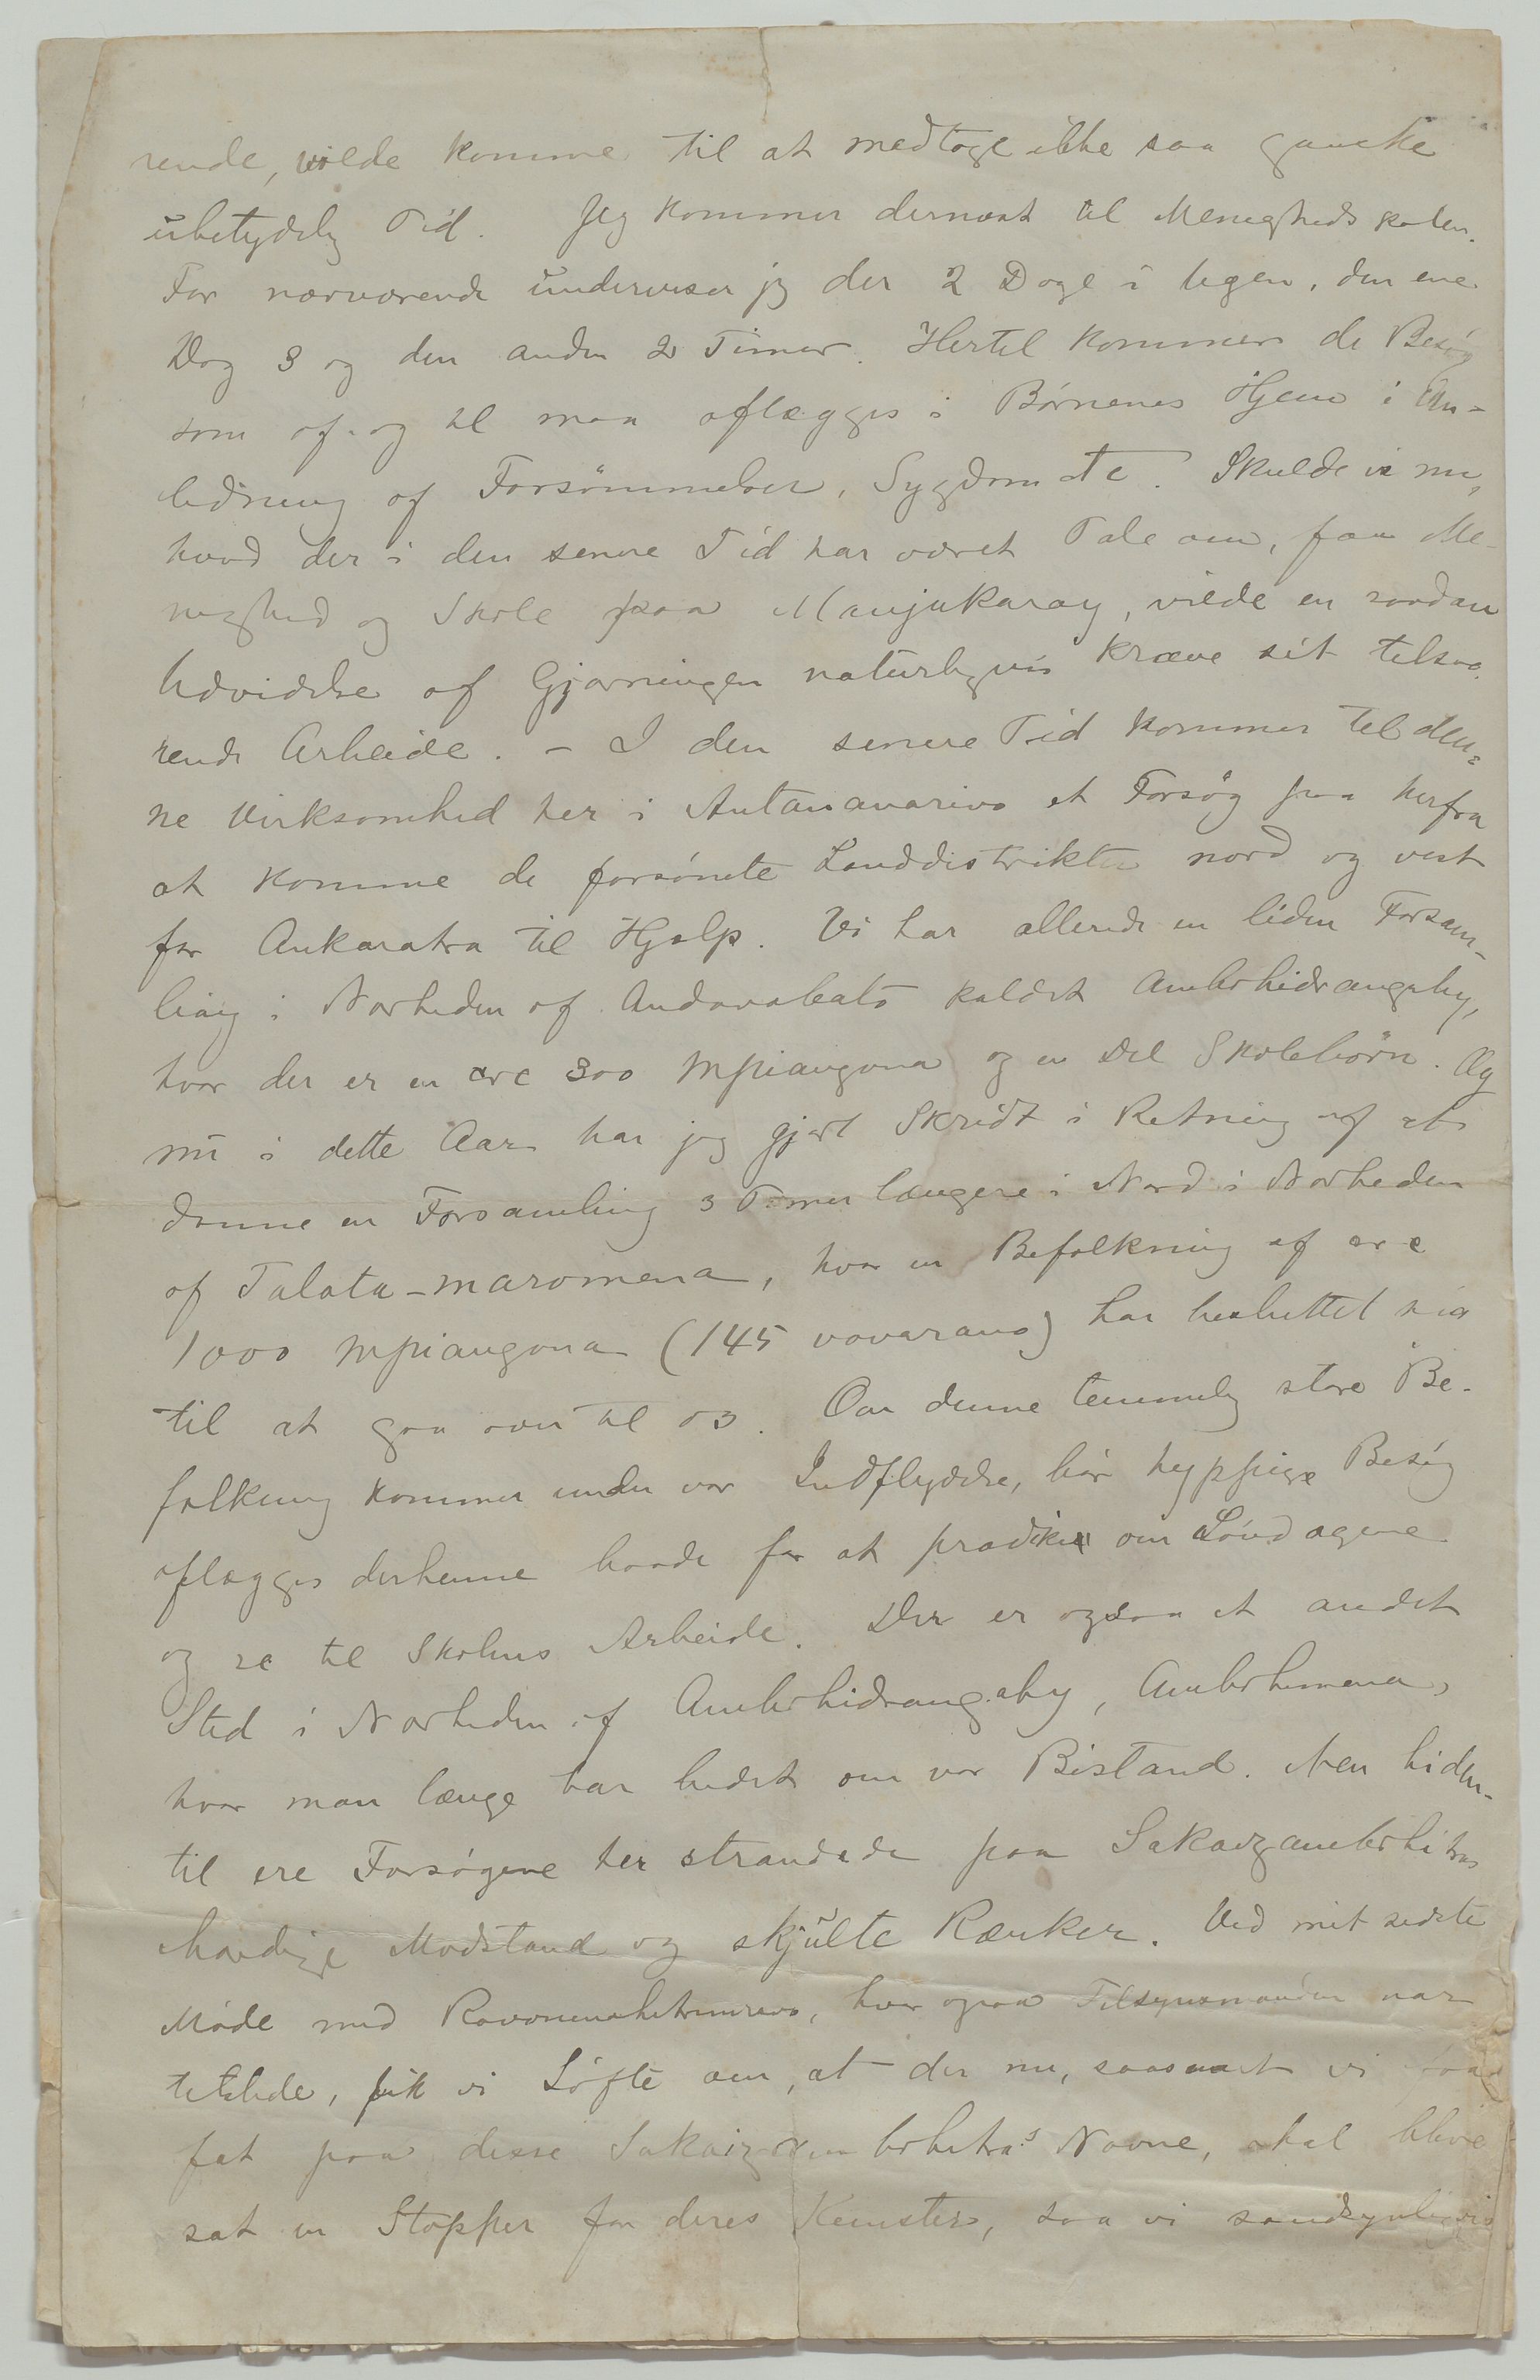 rende, vilde komme til at medtage ikke saa ganske
ubetydelig Tid. Jeg kommer dernæst til Menighedsskolen.
For nærværende underviser jeg der 2 Dage i Ugen, den ene
Dag 3 og den anden 2 Timer. Hertil kommer de Besøg
som af og til maa aflægges i Børnenes Hjem i An-
ledning af Forsømmelser, Sygdom etc. Skulde vi nu,
hvad der i den senere Tid har været Tale om, faa Me-
nighed og Skole paa Manjakaray, vilde en saadan
Udvidelse af Gjerningen naturligvis kræve sit tilsva-
rende Arbeide. – I den senere Tid kommer til den-
ne Virksomhed her i Antananarivo et Forsøg paa herfra
at komme de forsømte Landdistrikter nord og vest
for Ankaratra til Hjælp. Vi har allerede en liden Forsam-
ling i Nærheden af Andavabato kaldet Ambohidrangahy,
hvor der er en circ 300 Mpiangona og en Del Skolebørn. Og
nu i dette Aar har jeg gjort Skridt i Retning af at
danne en Forsamling 3 Timer længere i Nord i Nærheden
af Talata-maromena, hvor en Befolkning af circ
1000 Mpiangona (145 vavarano) har besluttet sig
til at gaa over til os. Om denne temmelig store Be-
folkning kommer under vor Indflydelse, bør hyppige Besøg
aflægges derhenne baade for at prædike om Søndagene
og se til Skolens Arbeide. Der er ogsaa et andet
Sted i Nærheden af Ambohidrangahy, Ambohimena,
hvor man længe har bedet om vor Bistand. Men hiden-
til ere Forsøgene her strandede paa Sakaizambohitras
ihærdige Modstand og skjulte Rænker. Ved mit sidste
Møde med Ravoninahitriniarivo, hvor ogsaa Tilsynsmanden var
tilstede, fik vi Løfte om, at der nu, saasnart vi faar
fat paa disse Sakaizambohitra's Navne, skal blive
sat en Stopper for deres Kunster, saa vi sandsynligvis